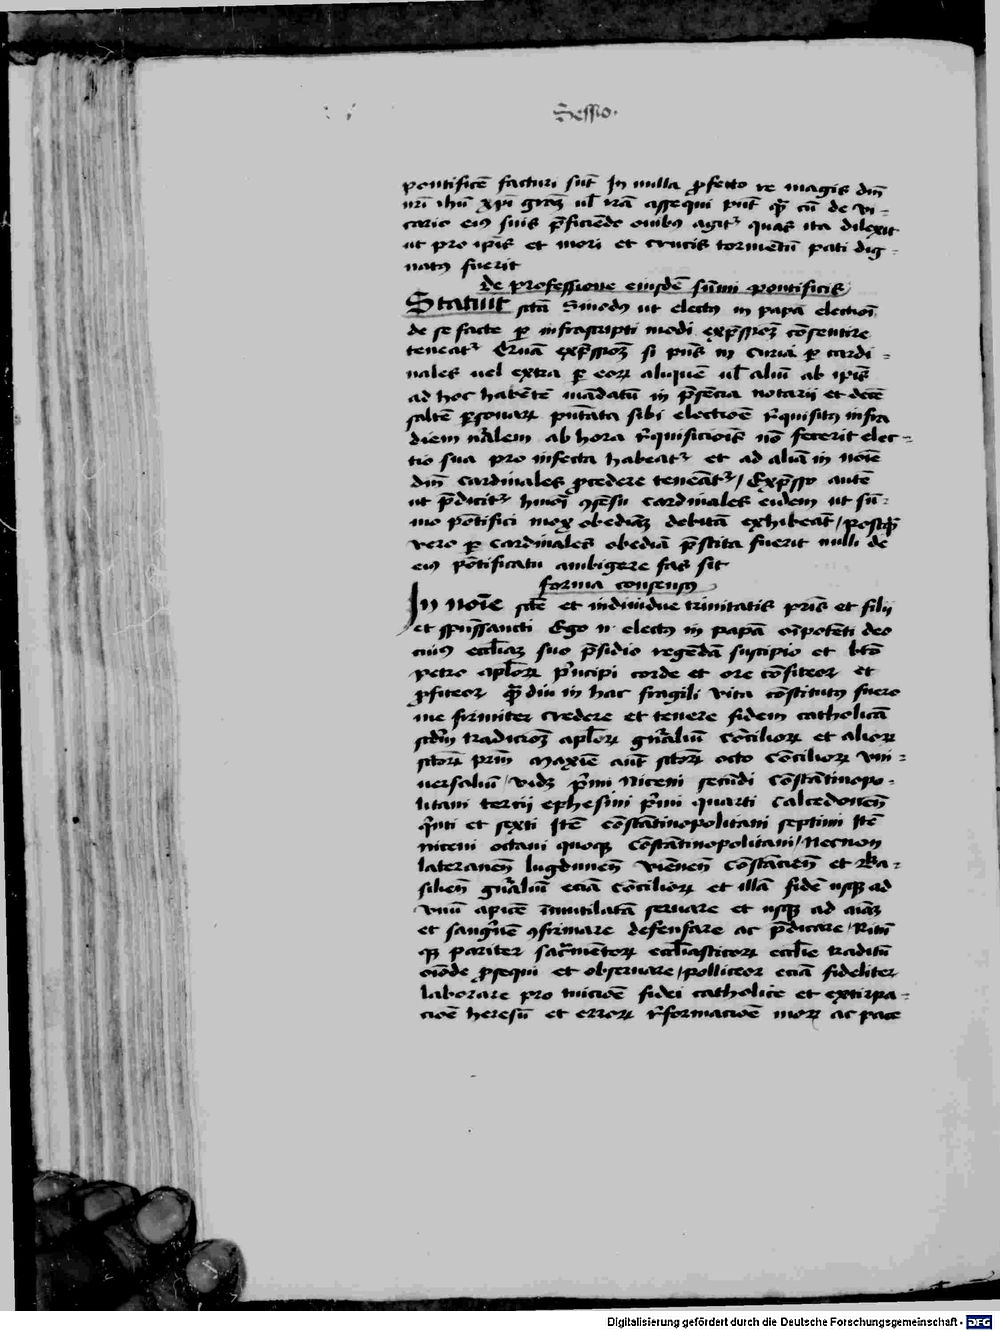 Sessio.
pontificē facturi sūt In nulla ꝓfecto re magis dn̄i
nr̄i ihū xp̄i grām vl̄ irā assequi pn̄t qꝫ cū de vi-
cario eiꝰ suis p̄ficiēde ouibꝰ agitʳ quas ita dilexit
ut pro ip̄is et mori et crucis tormētū pati dig-
natꝰ fuerit
De professione eiusdē sūmi pontificis
Statuit sctā Sinodꝰ ut electꝰ in papā electiōi
de se facte ꝑ infrascripti modi exp̄ssiōꝫ cōsentire
teneatʳ Quā exp̄ssiōꝫ si pn̄s in curia ꝑ cardi-
nales uel extra ꝑ eoꝝ aliquē ul̄ aliū ab ip̄is
ad hoc habētē mādatū in p̄sētia notarii et decē
saltē ꝑsonaꝝ pn̄tata sibi electiōe r̄quisitꝰ infra
diem nr̄alem ab hora r̄quisicionis nō fecerit elec-
tio sua pro infecta habeatʳ et ad aliā in noīe
dn̄i cardinales ꝓcedere teneātʳ / Exp̄sso autē
ut p̄dicitʳ hmōi ꝯsēsu cardinales eidem ut sū-
mo pōtifici mox obediāꝫ debitā exhibeāt / postqꝫ
vero ꝑ cardinales obediā p̄stita fuerit nulli de
eiꝰ pōtificatu ambigere fas sit
forma consensꝰ
In noīe scte et indiuidue trinitatis pr̄is et filii
et spūssancti Ego n electꝰ in papā oīpotēti deo
cuiꝰ eccl̄iaꝫ suo p̄sidio regēdā suscipio et btō
petro apl̄oꝝ p̄ncipi corde et ore cōfiteor et
ꝓfiteor qꝫ diu in hac fragili vita cōstitutꝰ fuero
me firmiter credere et tenere fidem catholicā
scdm̄ tradicioꝫ apl̄oꝝ gn̄raliū cōcilioꝝ et alioꝝ
sctoꝝ prm̄ maxīe aut sctoꝝ octo cōcilioꝝ vni-
uersaliū / vidꝫ p̄mi Niceni secūdi Cōstātinopo-
litani tercij ephesini p̄mi quarti Calcedoneñ
qn̄ti et sexti Itē Cōstātinopolitani septimi Itē
niceni octaui quoqꝫ cōstātinopolitani / Necnon
lateraneñ lugduneñ vieneñ Cōstācieñ et Ba-
silieñ gn̄raliū eciā cōcilioꝝ et illā fidē usqꝫ ad
vnū apicē īmutilatā seruare et usqꝫ ad aīaꝫ
et sangn̄ē ꝯfirmare defensare ac p̄dicare / Ritū
qꝫ pariter sacr̄mētoꝝ eccl̄iasticoꝝ eccl̄ie traditū
oīode ꝓsequi et obseruare / polliceor eciā fideliter
laborare pro tuicioē fidei catholice et extirpa-
cioē heresū et erroꝝ r̄formacioē moꝝ ac pace
Digitalisierung gefördert durch die Deutsche Forschungsgemeinschaft - DFG